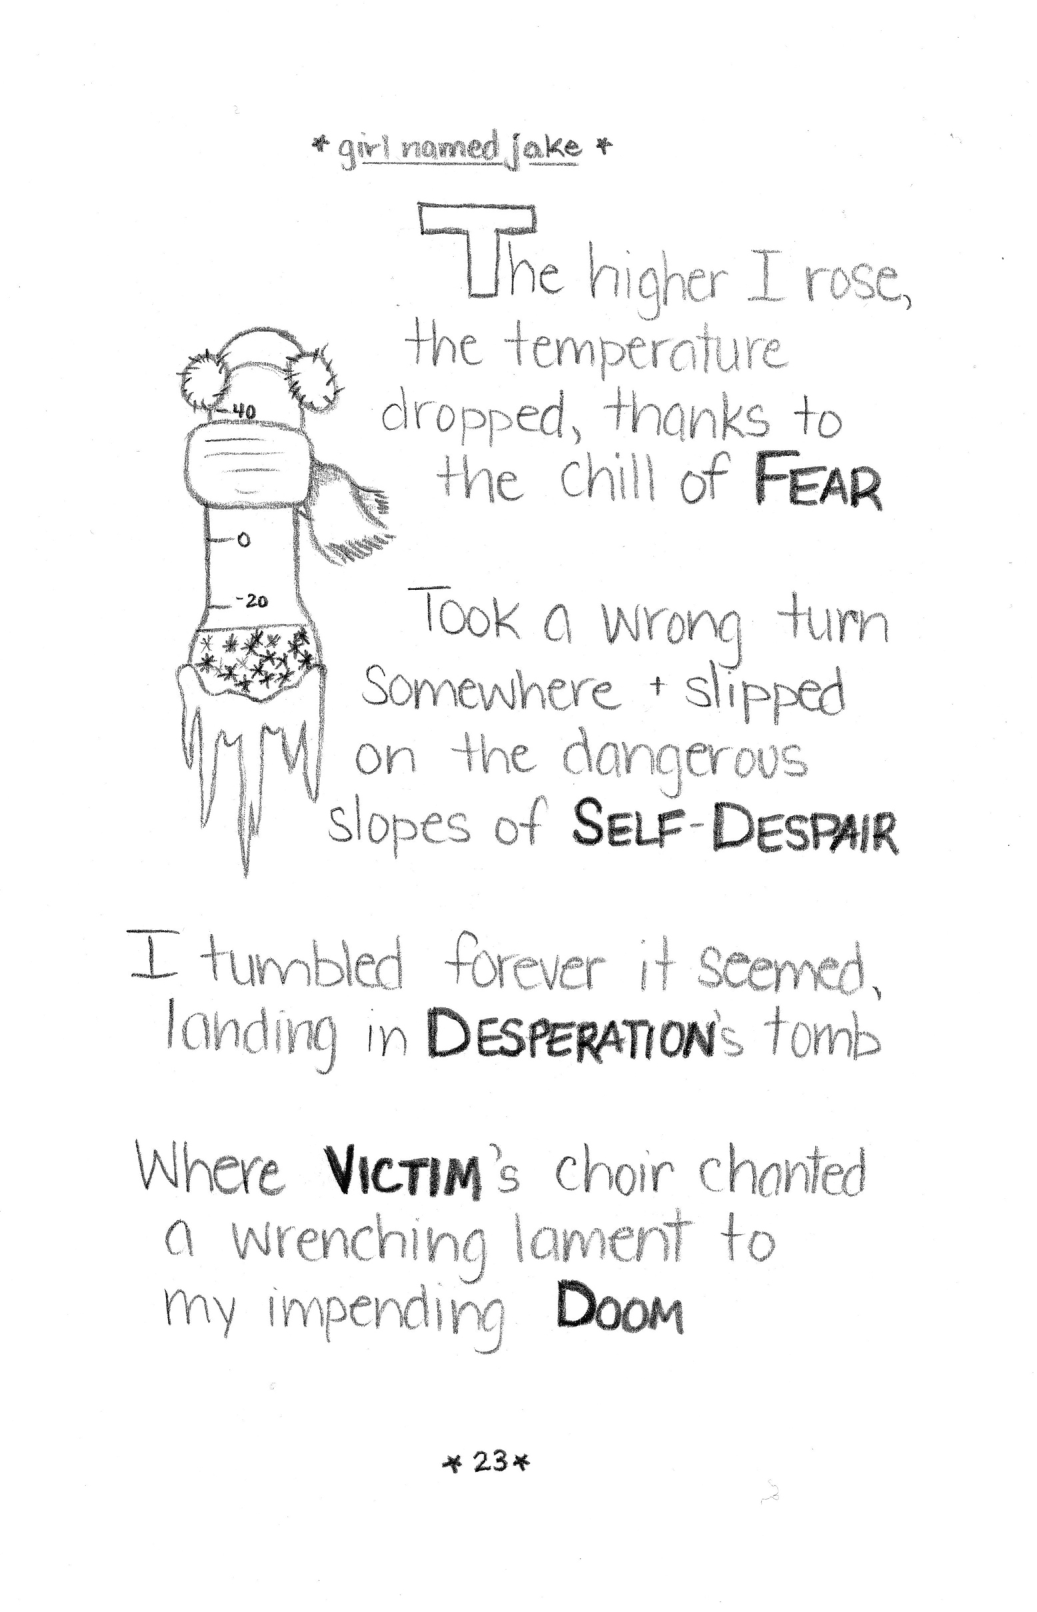 * girl named jake *
The higher I rose,
the temperature
dropped, thanks to
the chill of FEAR
40
0
-20
Took a wrong turn
Somewhere + slipped
on the dangerous
slopes of SELF-DESPAIR
I tumbled forever it seemed,
landing in DESPERATION's tomb
Where VICTIM's choir chanted
a wrenching lament to
my impending DOOM
* 23 *